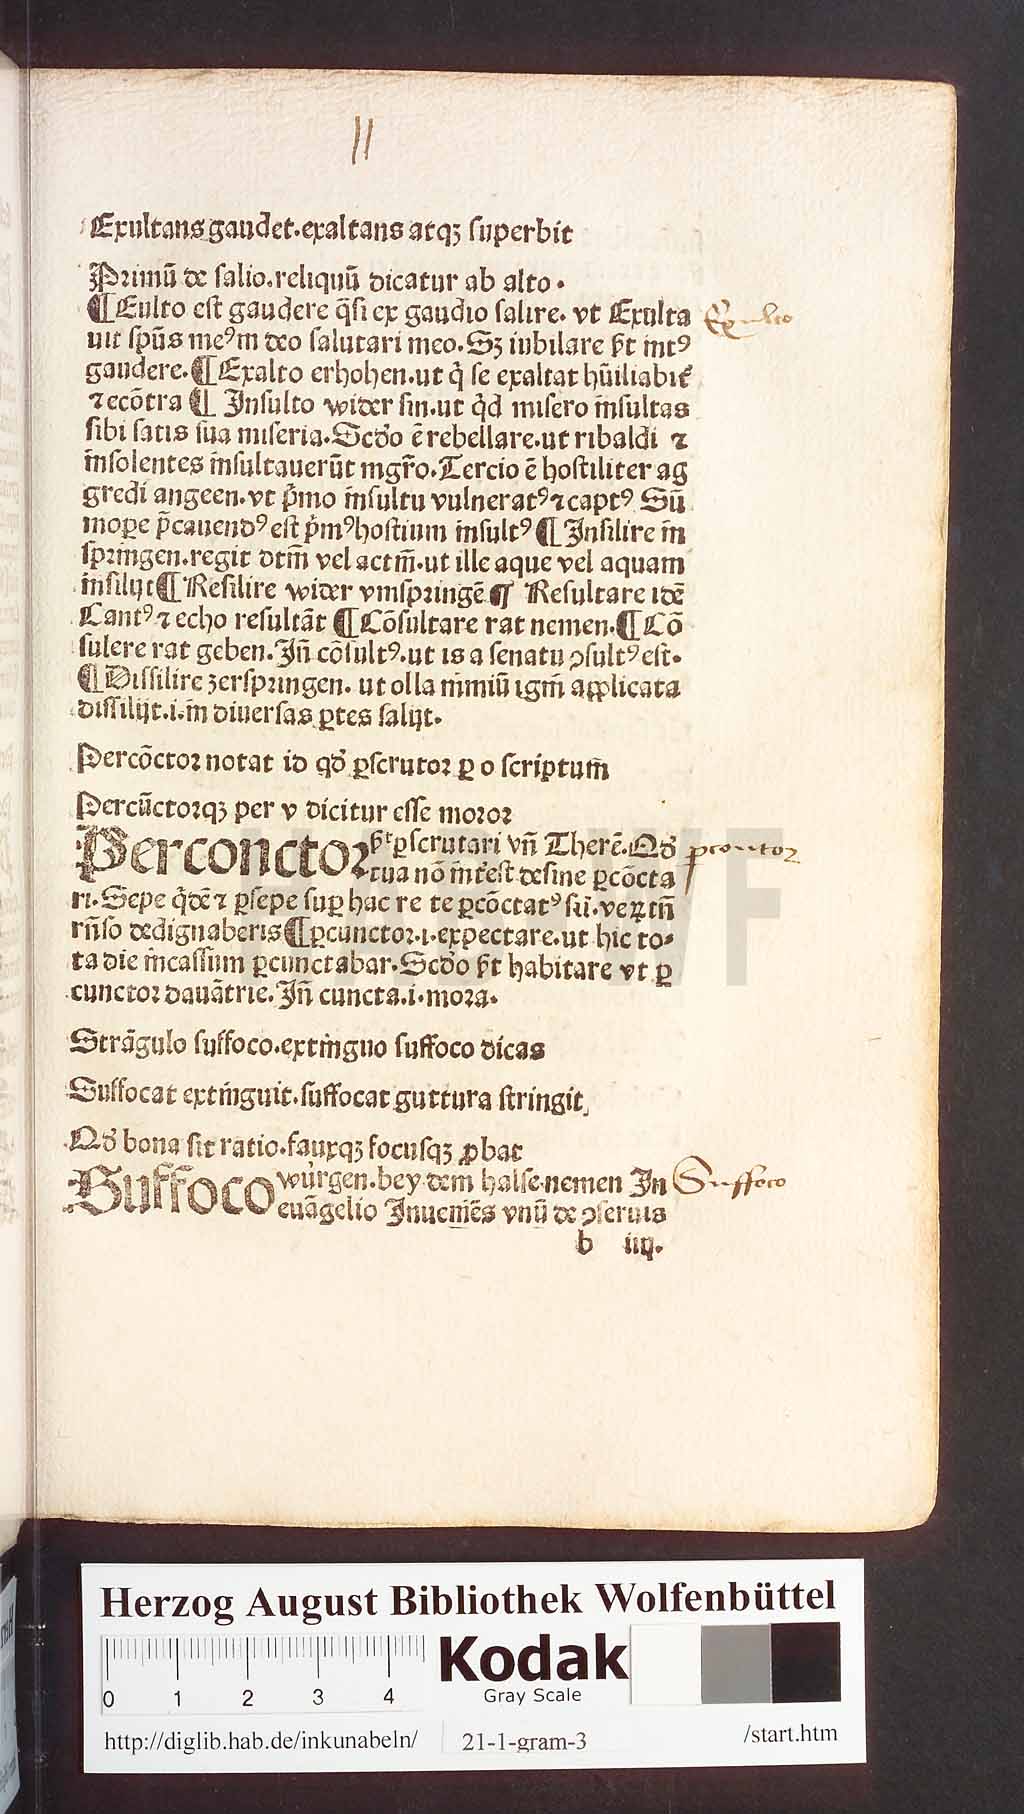 11
Exultans gaudet.exaltans atqꝫ superbit
Primū de salio.reliquū dicatur ab alto.
¶Eulto est gaudere q̄si ex gaudio salire. vt Exulta
Exulto
uit spūs meꝰm deo salutari meo.Sꝫ iubilare ē̄t intꝰ
gaudere.¶Exalto erhohen.ut q̇ se exaltat hūiliabit᷑
⁊ecōtra ¶ Insulto wider sin.ut q̇d misero insultas
sibi satis sua miseria.Scd̓o ē rebellare.ut ribaldi ⁊
insolentes insultauerūt mgr̄o.Tercio ē hostiliter ag
gredi angeen.vt p̄mo insultu vulneratꝰ⁊captꝰ Sū
mope p̄cauendꝰ est p̄mꝰhostium insultꝰ ¶ Insilire in
springen.regit dtm̄ vel actm̄.ut ille aque vel aquam
insilijt¶ Resilire wider vmspringē¶ Resultare idē
Cantꝰ ⁊ echo resultāt ¶Cōsultare rat nemen.¶Cō
sulere rat geben.Iñ cōsultꝰ.ut is a senatu ꝯsultꝰ est.
¶Dissilire zerspringen. ut olla nimiū igni applicata
dissilijt.i.in diuersas ꝑtes salijt.
Percōctor notat id qd̓ ꝑscrutor ꝑ o scriptum
Percūctorqꝫ per v dicitur esse moror
Perconctor ꝑscrutari vñ Therē.Qd̓
ꝑcontor
tua nō int̓est desine ꝑcōcta
ri.Sepe q̇dē ⁊ ꝑsepe suꝑ hac re te ꝑcōctatꝰ sū.veꝝtñ
rñso dedignaberis¶ꝑcunctor.i.expectare.ut hic to⸗
ta die incassum ꝑcunctabar.Scd̓o habitare vt ꝑ
cunctor dauātrie.Iñ cuncta.i.mora.
Strāgulo suffoco.extinguo suffoco dicas
Suffocat extinguit.suffocat guttura stringit
Qd̓ bona sit ratio.fauxqꝫ focusqꝫ ꝓbat
Suffoco würgen.bey dem halse nemen In
Suffoco
euāgelio Inueniēs vnū de ꝯseruis
b iiij.
HAB WF
Herzog August Bibliothek Wolfenbüttel
0 1 2 3 4
Kodak
Gray Scale
http://diglib.hab.de/inkunabeln/ 21-1-gram-3 /start.htm